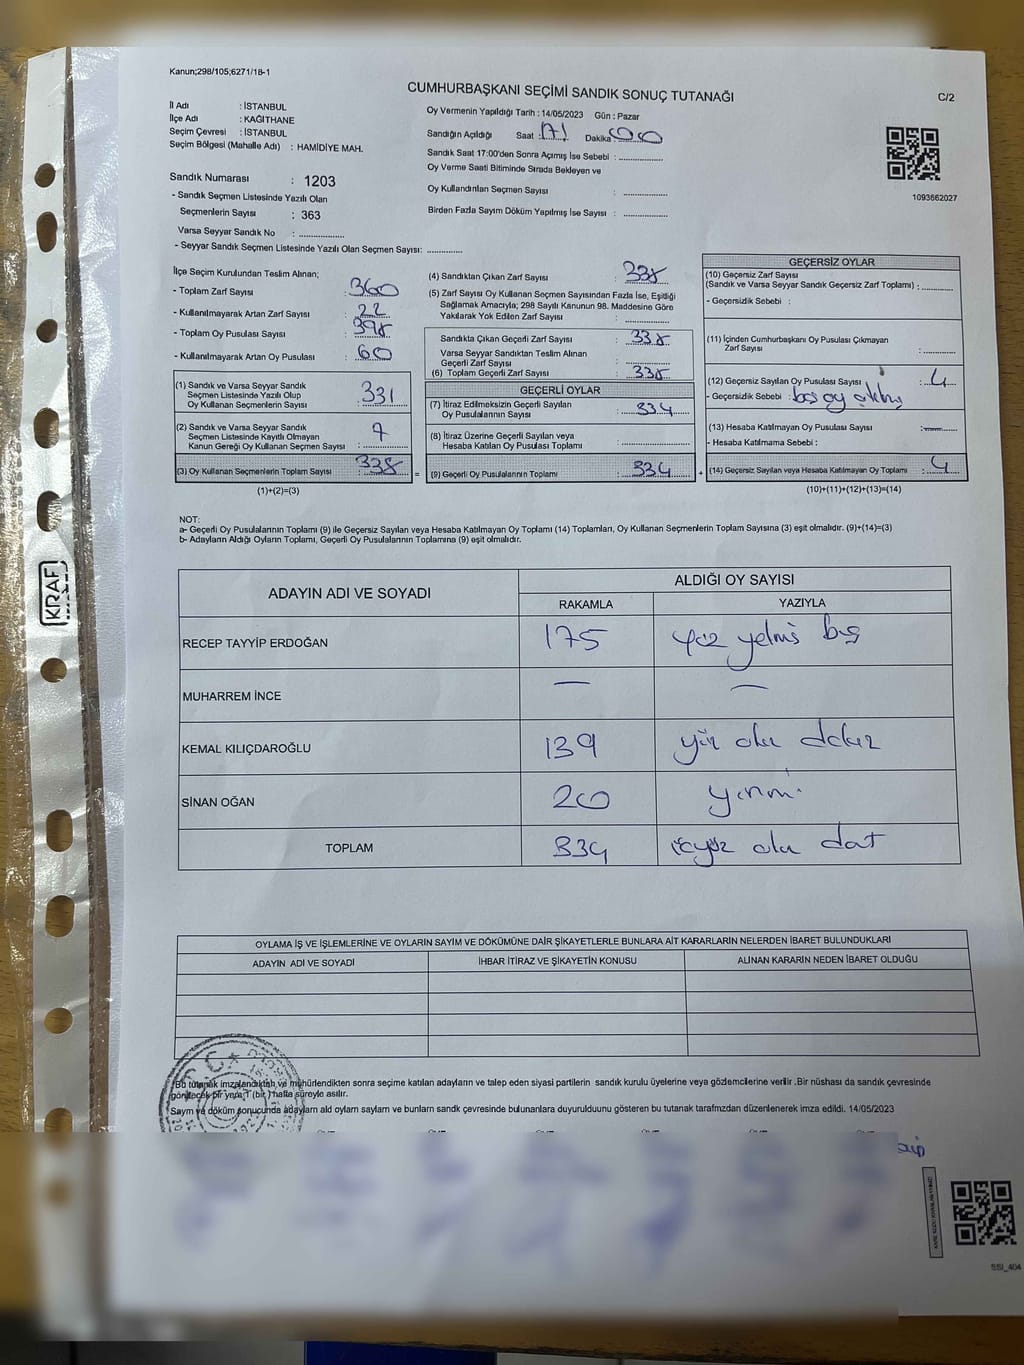 Kanun;298/105;6271/18-1
CUMHURBAŞKANI SEÇİMİ SANDIK SONUÇ TUTANAĞI
C/2
İl Adı : İSTANBUL
İlçe Adı : KAĞITHANE
Seçim Çevresi : İSTANBUL
Seçim Bölgesi (Mahalle Adı) : HAMİDİYE MAH.
Oy Vermenin Yapıldığı Tarih : 14/05/2023 Gün : Pazar
Sandığın Açıldığı Saat : 17! Dakika : 00
Sandık Saat 17:00'den Sonra Açımış İse Sebebi : ..............
Oy Verme Saati Bitiminde Sırada Bekleyen ve
Oy Kullandırılan Seçmen Sayısı : ..............
Birden Fazla Sayım Döküm Yapılmış İse Sayısı : ..............
1093662027
Sandık Numarası : 1203
- Sandık Seçmen Listesinde Yazılı Olan
Seçmenlerin Sayısı : 363
Varsa Seyyar Sandık No : ..............
- Seyyar Sandık Seçmen Listesinde Yazılı Olan Seçmen Sayısı: ..............
İlçe Seçim Kurulundan Teslim Alınan;
- Toplam Zarf Sayısı : 360
- Kullanılmayarak Artan Zarf Sayısı : 22
- Toplam Oy Pusulası Sayısı : 398
- Kullanılmayarak Artan Oy Pusulası : 60
(1) Sandık ve Varsa Seyyar Sandık
Seçmen Listesinde Yazılı Olup
Oy Kullanan Seçmenlerin Sayısı : 331
(2) Sandık ve Varsa Seyyar Sandık
Seçmen Listesinde Kayıtlı Olmayan
Kanun Gereği Oy Kullanan Seçmen Sayısı : 7
(3) Oy Kullanan Seçmenlerin Toplam Sayısı : 338
(1)+(2)=(3)
(4) Sandıktan Çıkan Zarf Sayısı : 338
(5) Zarf Sayısı Oy Kullanan Seçmen Sayısından Fazla İse, Eşitliği
Sağlamak Amacıyla; 298 Sayılı Kanunun 98. Maddesine Göre
Yakılarak Yok Edilen Zarf Sayısı : ..............
Sandıkta Çıkan Geçerli Zarf Sayısı : 338
Varsa Seyyar Sandıktan Teslim Alınan
Geçerli Zarf Sayısı : ..............
(6) Toplam Geçerli Zarf Sayısı : 338
GEÇERLİ OYLAR
(7) İtiraz Edilmeksizin Geçerli Sayılan
Oy Pusulalarının Sayısı : 334
(8) İtiraz Üzerine Geçerli Sayılan veya
Hesaba Katılan Oy Pusulası Toplamı : ..............
= (9) Geçerli Oy Pusulalarının Toplamı : 334
GEÇERSİZ OYLAR
(10) Geçersiz Zarf Sayısı
(Sandık ve Varsa Seyyar Sandık Geçersiz Zarf Toplamı) : ........
- Geçersizlik Sebebi :
(11) İçinden Cumhurbaşkanı Oy Pusulası Çıkmayan
Zarf Sayısı : ........
(12) Geçersiz Sayılan Oy Pusulası Sayısı : 4
- Geçersizlik Sebebi : boş oy
(13) Hesaba Katılmayan Oy Pusulası Sayısı : —
- Hesaba Katılmama Sebebi :
+ (14) Geçersiz Sayılan veya Hesaba Katılmayan Oy Toplamı : 4
(10)+(11)+(12)+(13)=(14)
NOT:
a- Geçerli Oy Pusulalarının Toplamı (9) ile Geçersiz Sayılan veya Hesaba Katılmayan Oy Toplamı (14) Toplamları, Oy Kullanan Seçmenlerin Toplam Sayısına (3) eşit olmalıdır. (9)+(14)=(3)
b- Adayların Aldığı Oyların Toplamı, Geçerli Oy Pusulalarının Toplamına (9) eşit olmalıdır.
ADAYIN ADI VE SOYADI
ALDIĞI OY SAYISI
RAKAMLA YAZIYLA
RECEP TAYYİP ERDOĞAN 175 yüz yetmiş beş
MUHARREM İNCE — —
KEMAL KILIÇDAROĞLU 139 yüz otuz dokuz
SİNAN OĞAN 20 yirmi
TOPLAM 334 üçyüz otuz dört
OYLAMA İŞ VE İŞLEMLERİNE VE OYLARIN SAYIM VE DÖKÜMÜNE DAİR ŞİKAYETLERLE BUNLARA AİT KARARLARIN NELERDEN İBARET BULUNDUKLARI
ADAYIN ADI VE SOYADI İHBAR İTİRAZ VE ŞİKAYETİN KONUSU ALINAN KARARIN NEDEN İBARET OLDUĞU
Bu tutanak imzalandıktan ve mühürlendikten sonra seçime katılan adayların ve talep eden siyasi partilerin sandık kurulu üyelerine veya gözlemcilerine verilir .Bir nüshası da sandık çevresinde
görülecek bir yere 1 (bir ) hafta süreyle asılır.
Sayım ve döküm sonucunda adayların ald oyların sayların ve bunların sandk çevresinde bulunanlara duyurulduunu gösteren bu tutanak tarafmzdan düzenlenerek imza edildi. 14/05/2023
KRAF
SSI_404